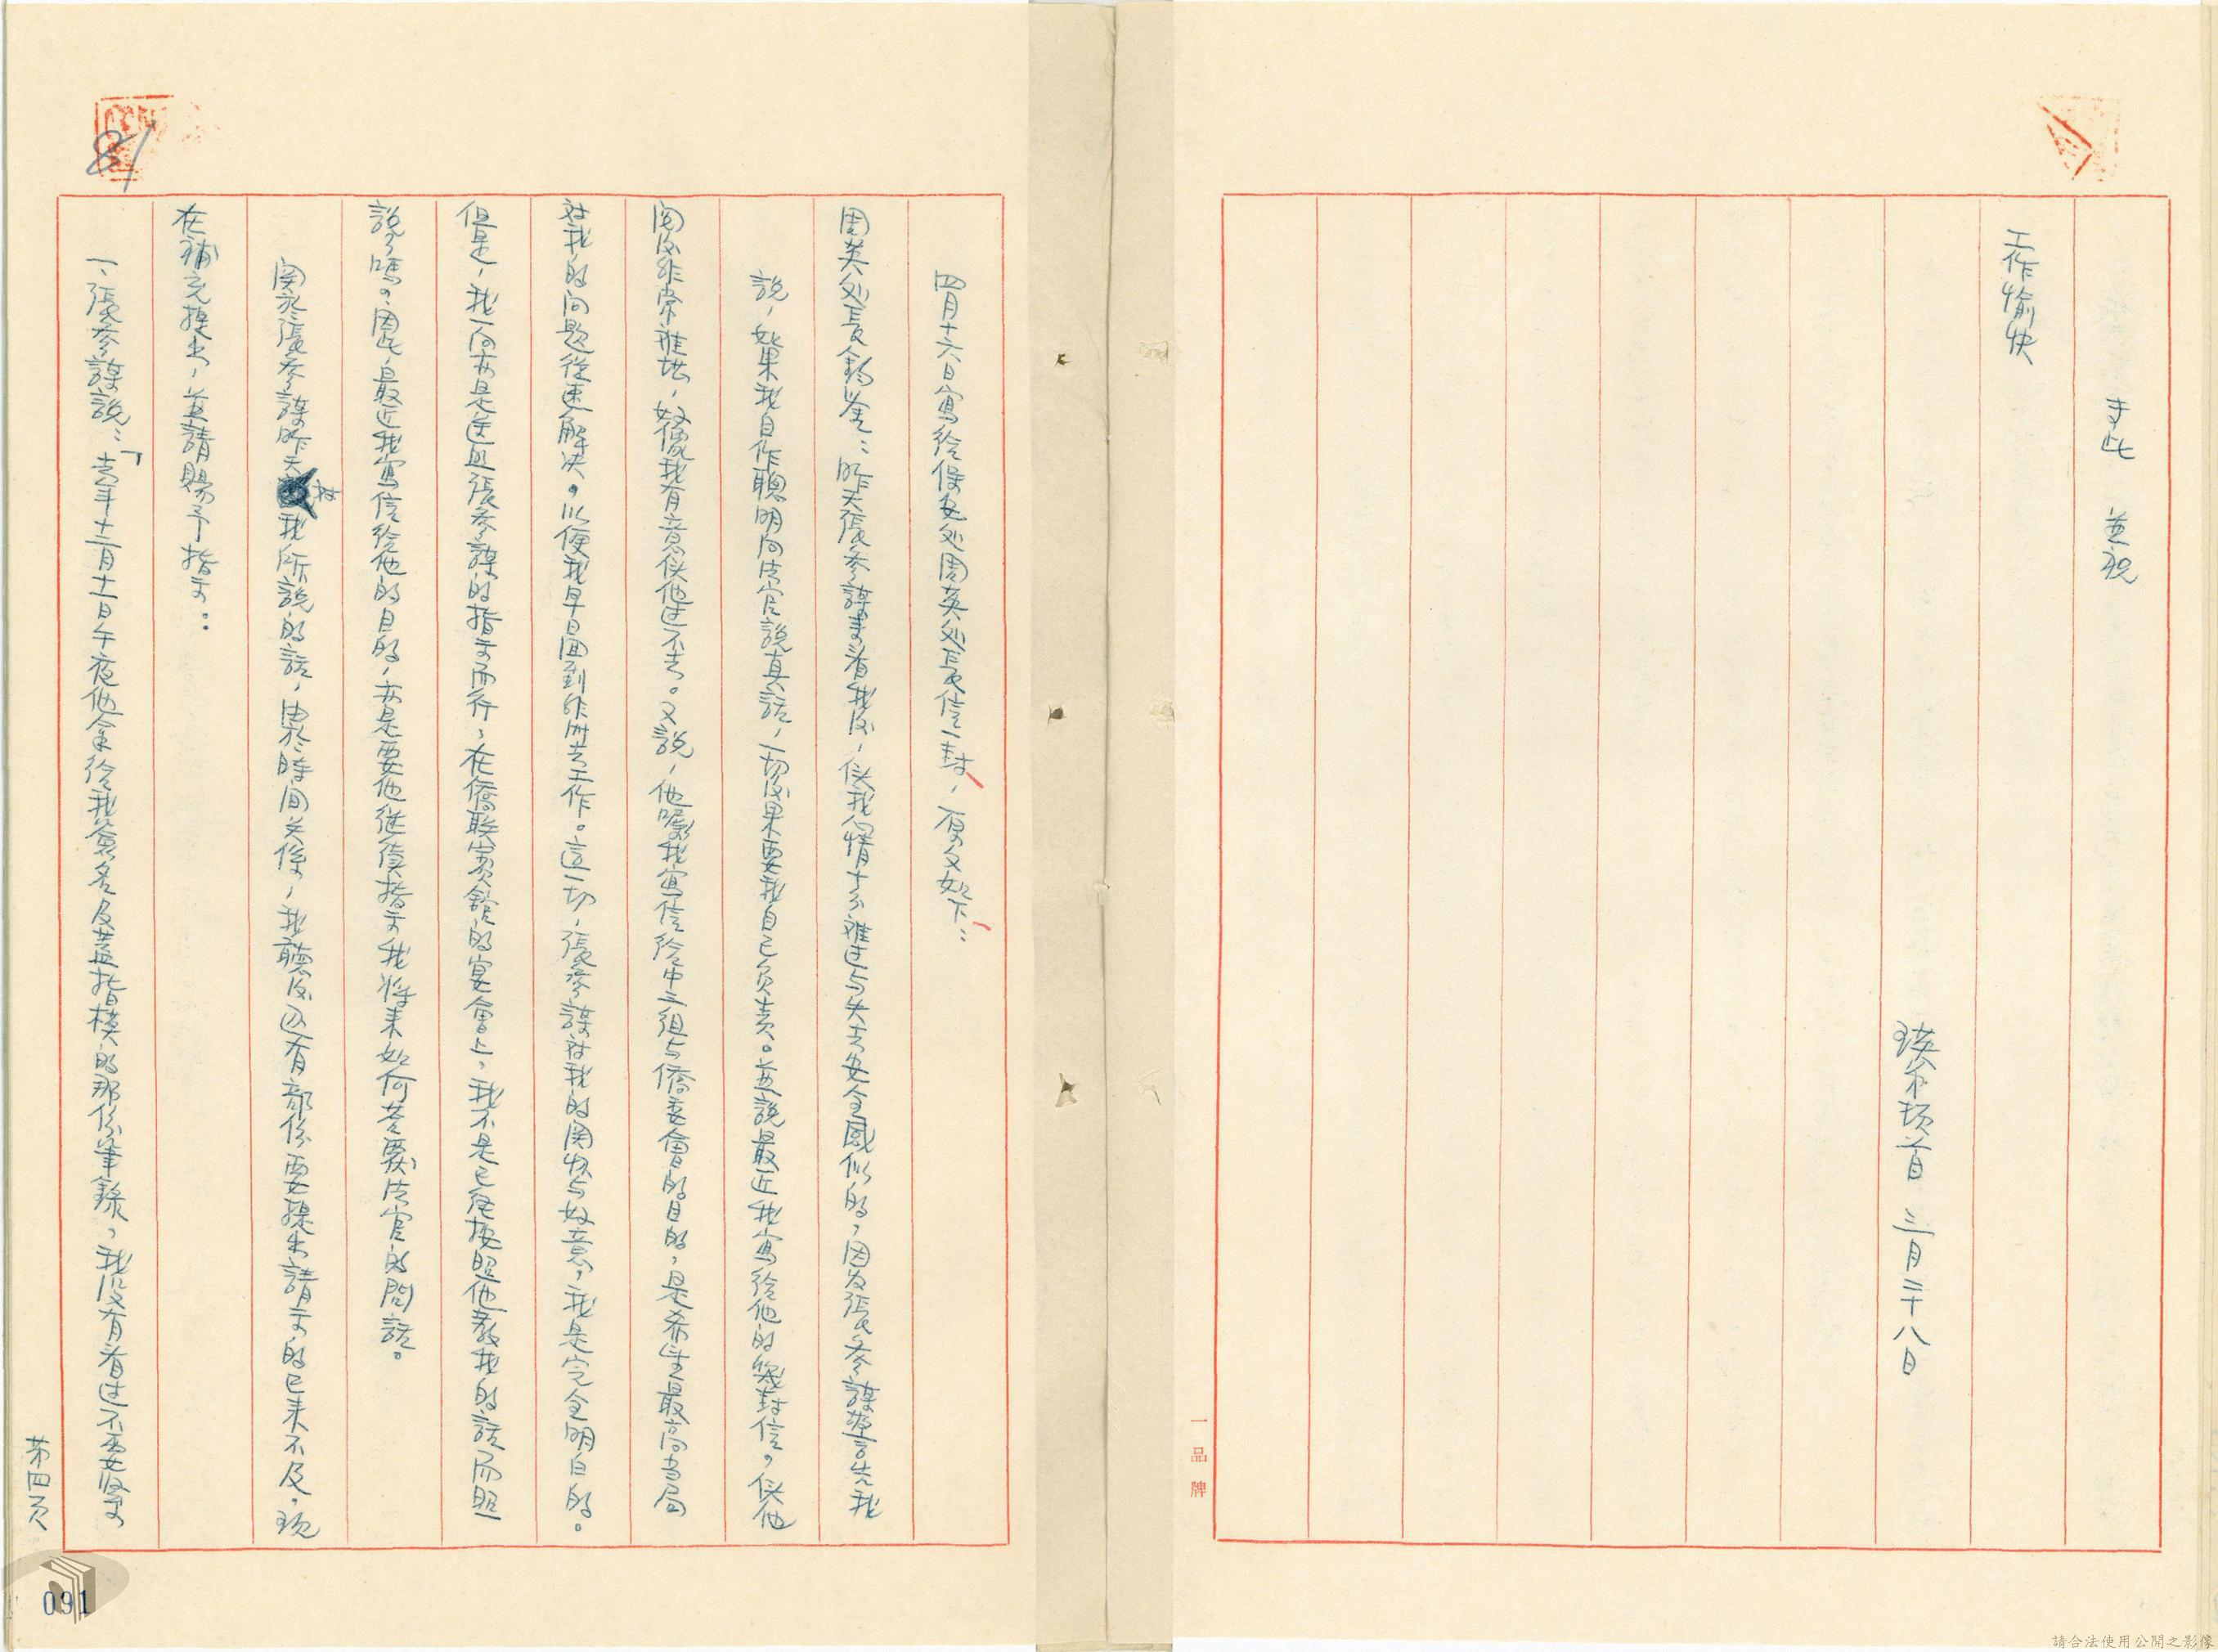 專此 並祝
工作愉快
瑛 弟頓首 三月二十八日
一品牌
四月十六日寫給保安处周英处長信一封，原文如下：
周英处長鈞鉴：昨天張参謀来看我後，使我心情十分难过与失去安全感似的，因为張参謀警告我
說，如果我自作聰明向法官說真話，一切後果要我自己负责。並說最近我寫給他的幾封信，使他
閱後非常难堪，好像我有意使他过不去。又說，他囑我寫信給中三组与僑委會的目的，是希望最高当局
对我的问题從速解决，以便我早日回到非洲去工作。這一切，張参謀对我的関懷与好意，我是完全明白的。
但是，我一向亦是遵照張参謀的指示而行，在僑联賓館的宴會上，我不是已经按照他教我的話而照
說了嗎。因此，最近我寫信给他的目的，亦是要他继續指示我将来如何答覆法官的問話。
関於張参謀昨天对我所說的話，由於時间关係，我聽後还有部份要提出請示的已来不及，现
在補充提出，並請賜予指示。：
一、張参謀說：「去年十二月十一日午夜他拿给我簽名及蓋指模的那份筆錄，我没有看过不要緊，
第四页
81
091
請合法使用公開之影像